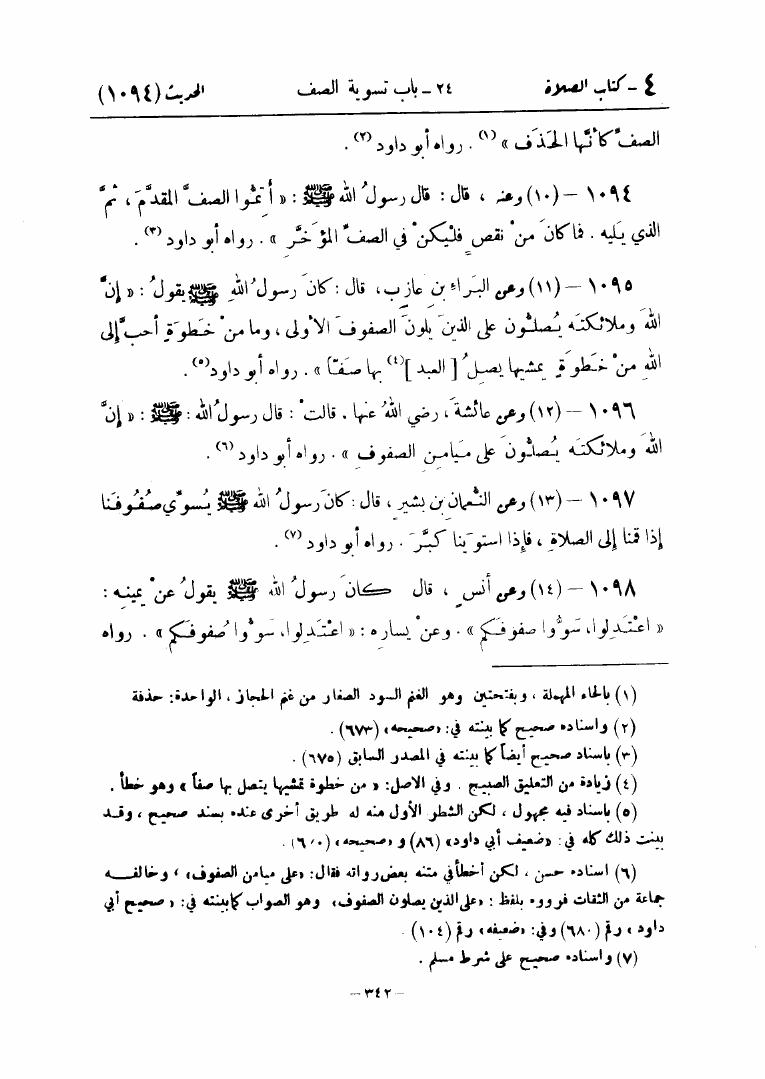 ٤ - كتاب الصلاة ٢٤ - باب تسوية الصف الحديث (١٠٩٤)
الصفَّ كأنَّها الحَذَف » (١) . رواه أبو داود (٢) .
١٠٩٤ - (١٠) وعنه ، قال : قال رسولُ الله ﷺ : « أتمُّوا الصفَّ المقدَّمَ ، ثمَّ
الذي يَليه . فما كانَ منْ نقصٍ فلْيكنْ في الصفِّ المؤَخَّرِ » . رواه أبو داود (٣) .
١٠٩٥ - (١١) وعن البَراءِ بنِ عازبٍ ، قال : كانَ رسولُ اللهِ ﷺ يقولُ : « إنَّ
اللهَ وملائكتَه يُصلُّون على الذينَ يلونَ الصفوفَ الأولى ، وما منْ خَطوةٍ أحبُّ إلى
اللهِ منْ خَطوةٍ يمشيها يصِلُ [ العبد ] (٤) بها صَفّاً » . رواه أبو داود (٥) .
١٠٩٦ - (١٢) وعن عائشةَ ، رضي اللهُ عنها . قالتْ : قال رسولُ الله : ﷺ : « إنَّ
اللهَ وملائكتَه يُصلُّونَ على مَيامنِ الصفوفِ » . رواه أبو داود (٦) .
١٠٩٧ - (١٣) وعن النُّعمانِ بن بشيرٍ ، قال : كانَ رسولُ الله ﷺ يُسوِّي صُفُوفَنا
إذا قمنا إلى الصلاةِ ، فإذا استوَينا كبَّرَ . رواه أبو داود (٧) .
١٠٩٨ - (١٤) وعن أنسٍ ، قال كانَ رسولُ الله ﷺ يقولُ عنْ يمينِه :
« اعْتَدِلوا، سَوُّوا صفوفَكم » . وعنْ يسارِه : « اعْتَدِلوا، سَوُّوا صُفوفَكم » . رواه
(١) بالحاء المهملة ، وبفتحتين وهو الغنم السود الصغار من غنم الحجاز ، الواحدة : حذفة
(٢) واسناده صحيح كما بينته في : «صحيحه» (٦٧٣) .
(٣) باسناد صحيح أيضاً كما بينته في المصدر السابق (٦٧٥) .
(٤) زيادة من التعليق الصبيح . وفي الاصل : « من خطوة تمشيها يتصل بها صفاً » وهو خطأ .
(٥) باسناد فيه مجهول ، لكن الشطر الأول منه له طريق أخرى عنده بسند صحيح ، وقد
بينت ذلك كله في : «ضعيف أبي داود» (٨٦) و «صحيحه» .
(٦) اسناده حسن ، لكن أخطأ في متنه بعض رواته فقال : «على ميامن الصفوف» ، وخالفه
جماعة من الثقات فرووه بلفظ : «على الذين يصلون الصفوف» وهو الصواب كما بينته في : « صحيح أبي
داود » رقم (٦٨٠) وفي : «ضعيفه» رقم (١٠٤) .
(٧) واسناده صحيح على شرط مسلم .
- ٣٤٢ -